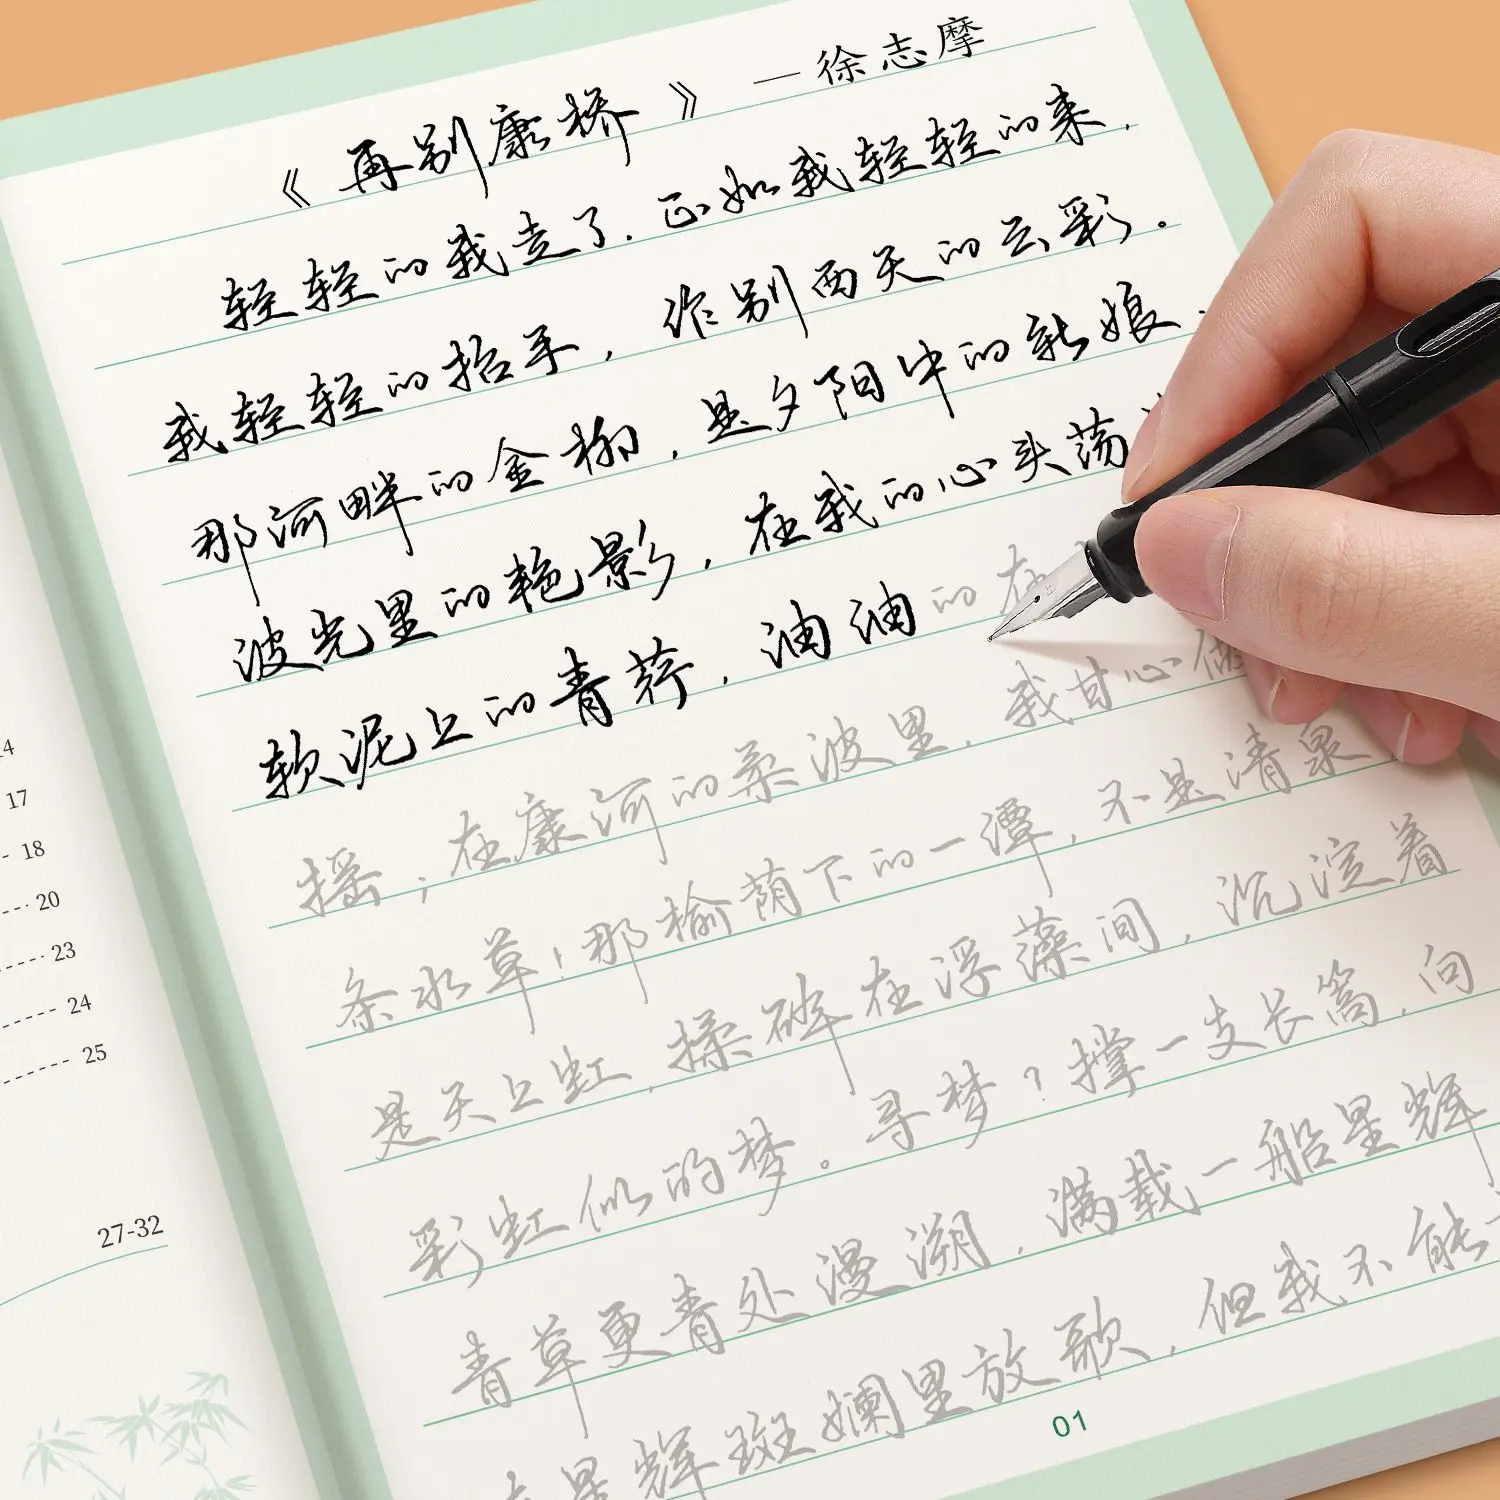 《再别康桥》—徐志摩
轻轻的我走了.正如我轻轻的来.
我轻轻的招手，作别西天的云彩。
那河畔的金柳，是夕阳中的新娘.
波光里的艳影，在我的心头荡
软泥上的青荇，油油的在
摇；在康河的柔波里，我甘心做
条水草！那榆荫下的一潭，不是清泉
是天上虹，揉碎在浮藻间，沉淀着
彩虹似的梦。寻梦？撑一支长篙，向
青草更青处漫溯，满载一船星辉
在星辉斑斓里放歌，但我不能
01
14
17
18
20
23
24
25
27-32